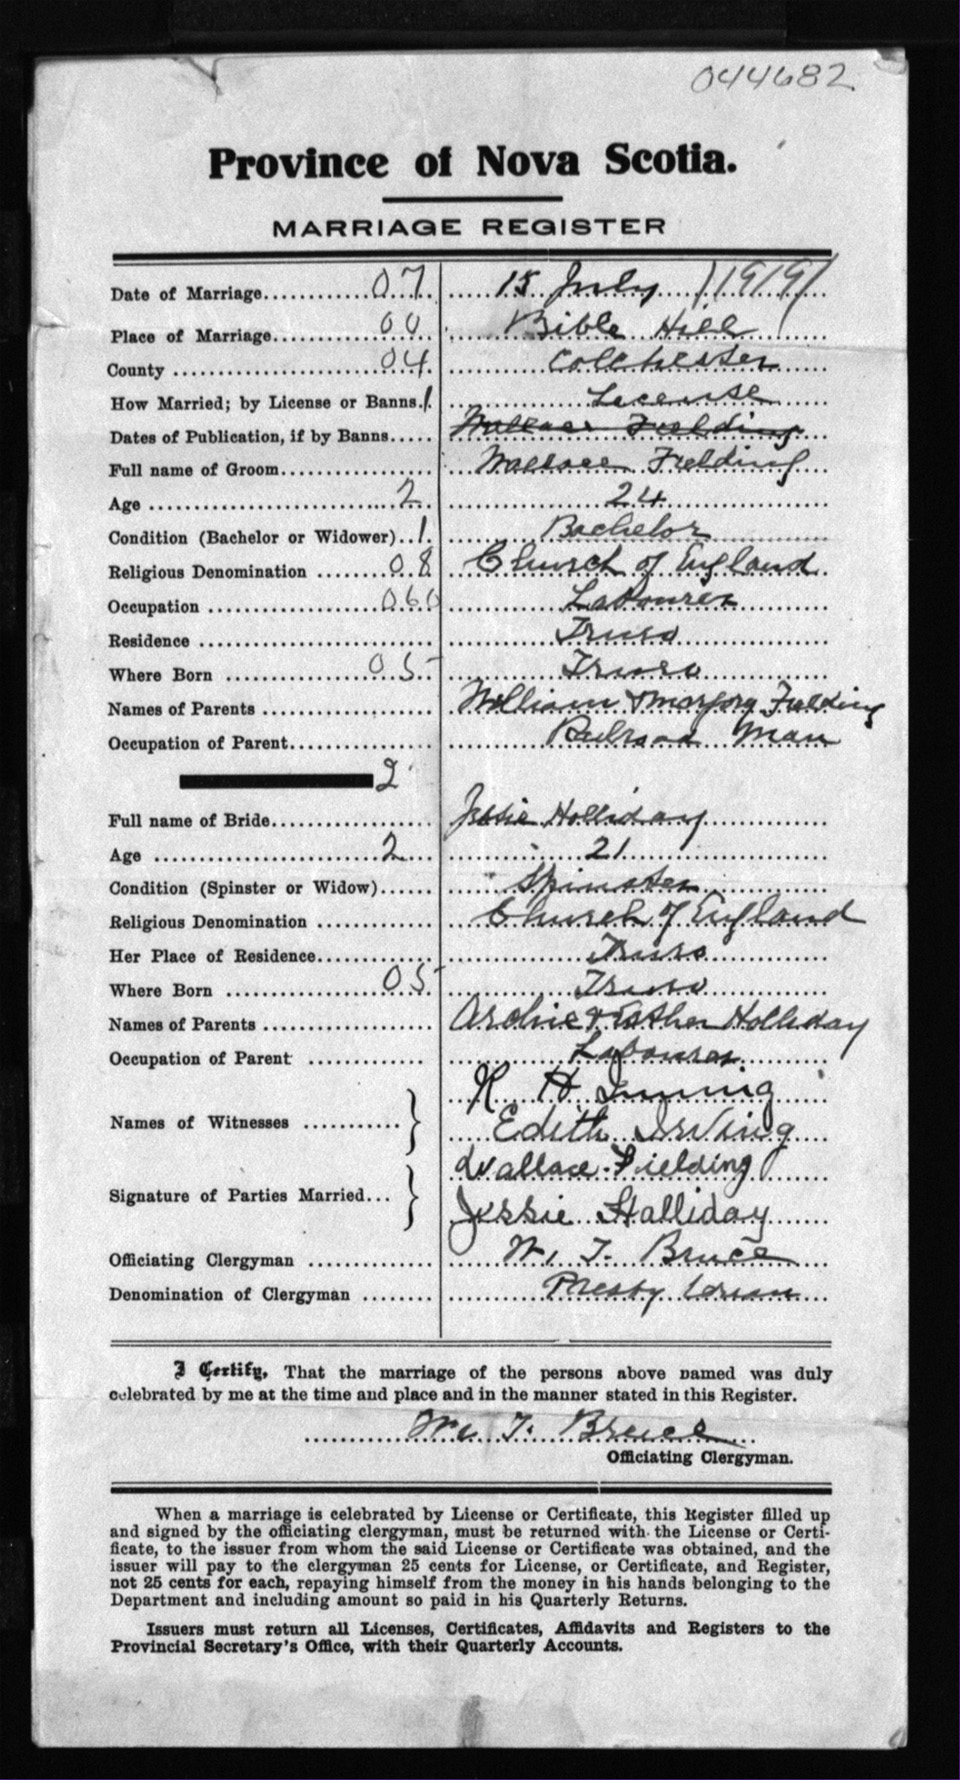 044682
Province of Nova Scotia.
MARRIAGE REGISTER
Date of Marriage 07 15 July 1919
Place of Marriage 00 Bible Hill
County 04 Colchester
How Married; by License or Banns 1 License
Dates of Publication, if by Banns Wallace Fielding
Full name of Groom Wallace Fielding
Age 2 24
Condition (Bachelor or Widower) 1 Bachelor
Religious Denomination 08 Church of England
Occupation 060 Labourer
Residence Truro
Where Born 05 Truro
Names of Parents William & Fielding
Occupation of Parent Railroad Man
2
Full name of Bride Jessie Holliday
Age 2 21
Condition (Spinster or Widow) Spinster
Religious Denomination Church of England
Her Place of Residence Truro
Where Born 05 Truro
Names of Parents Archie & Esther Holliday
Occupation of Parent Labourer
H
Names of Witnesses Edith Irving
Wallace Fielding
Signature of Parties Married Jessie Halliday
Officiating Clergyman Wm. T. Bruce
Denomination of Clergyman Presbyterian
I Certify, That the marriage of the persons above named was duly
celebrated by me at the time and place and in the manner stated in this Register.
Wm T. Bruce
Officiating Clergyman.
When a marriage is celebrated by License or Certificate, this Register filled up
and signed by the officiating clergyman, must be returned with the License or Certi-
ficate, to the issuer from whom the said License or Certificate was obtained, and the
issuer will pay to the clergyman 25 cents for License, or Certificate, and Register,
not 25 cents for each, repaying himself from the money in his hands belonging to the
Department and including amount so paid in his Quarterly Returns.
Issuers must return all Licenses, Certificates, Affidavits and Registers to the
Provincial Secretary's Office, with their Quarterly Accounts.